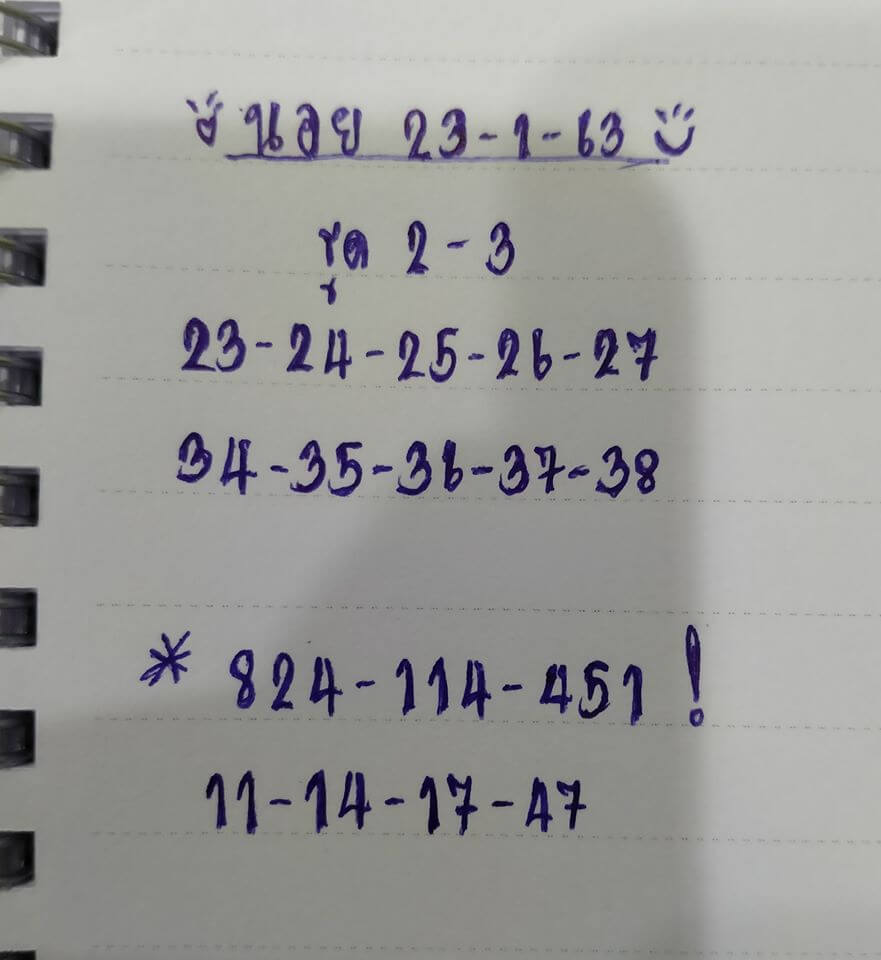 นอย 23-1-63
รูด 2-3
23-24-25-26-27
34-35-36-37-38
* 824-114-451 !
11-14-17-47